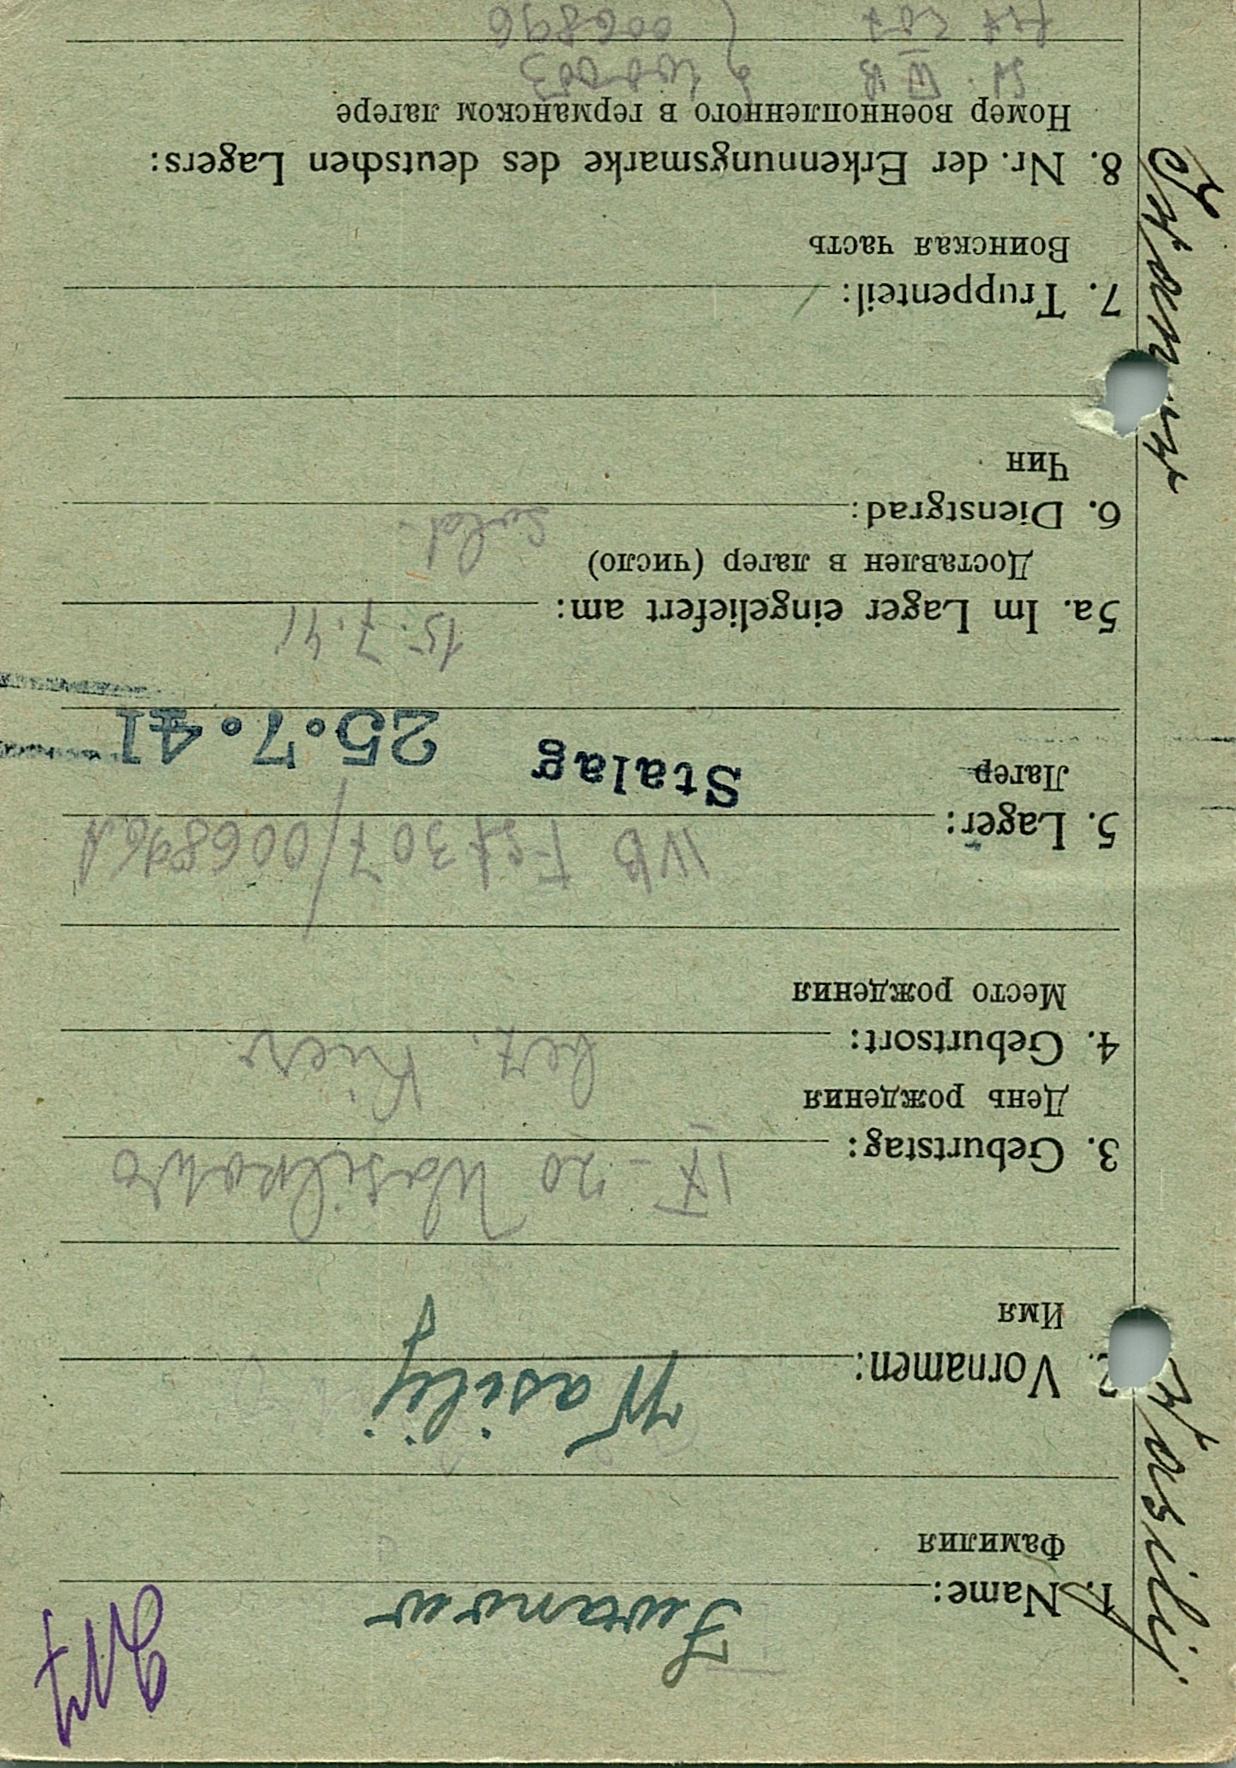 Iwanow
1. Name:
Фамилия
Wasilij
2. Vornamen:
Имя
IX - 20 Wasilkowo
3. Geburtstag:
День рождения
bez. Kiew
4. Geburtsort:
Место рождения
IVB Fst 307/006896A
5. Lager:
Лагер
Stalag 25.7.41
15.7.41
5a. Im Lager eingeliefert am:
Доставлен в лагер (число)
Sold.
6. Dienstgrad:
Чин
7. Truppenteil:
Воинская часть
8. Nr. der Erkennungsmarke des deutschen Lagers:
Номер военнопленного в германском лагере
St. IV B
Fst 307 006896
Wasilij Iwanow